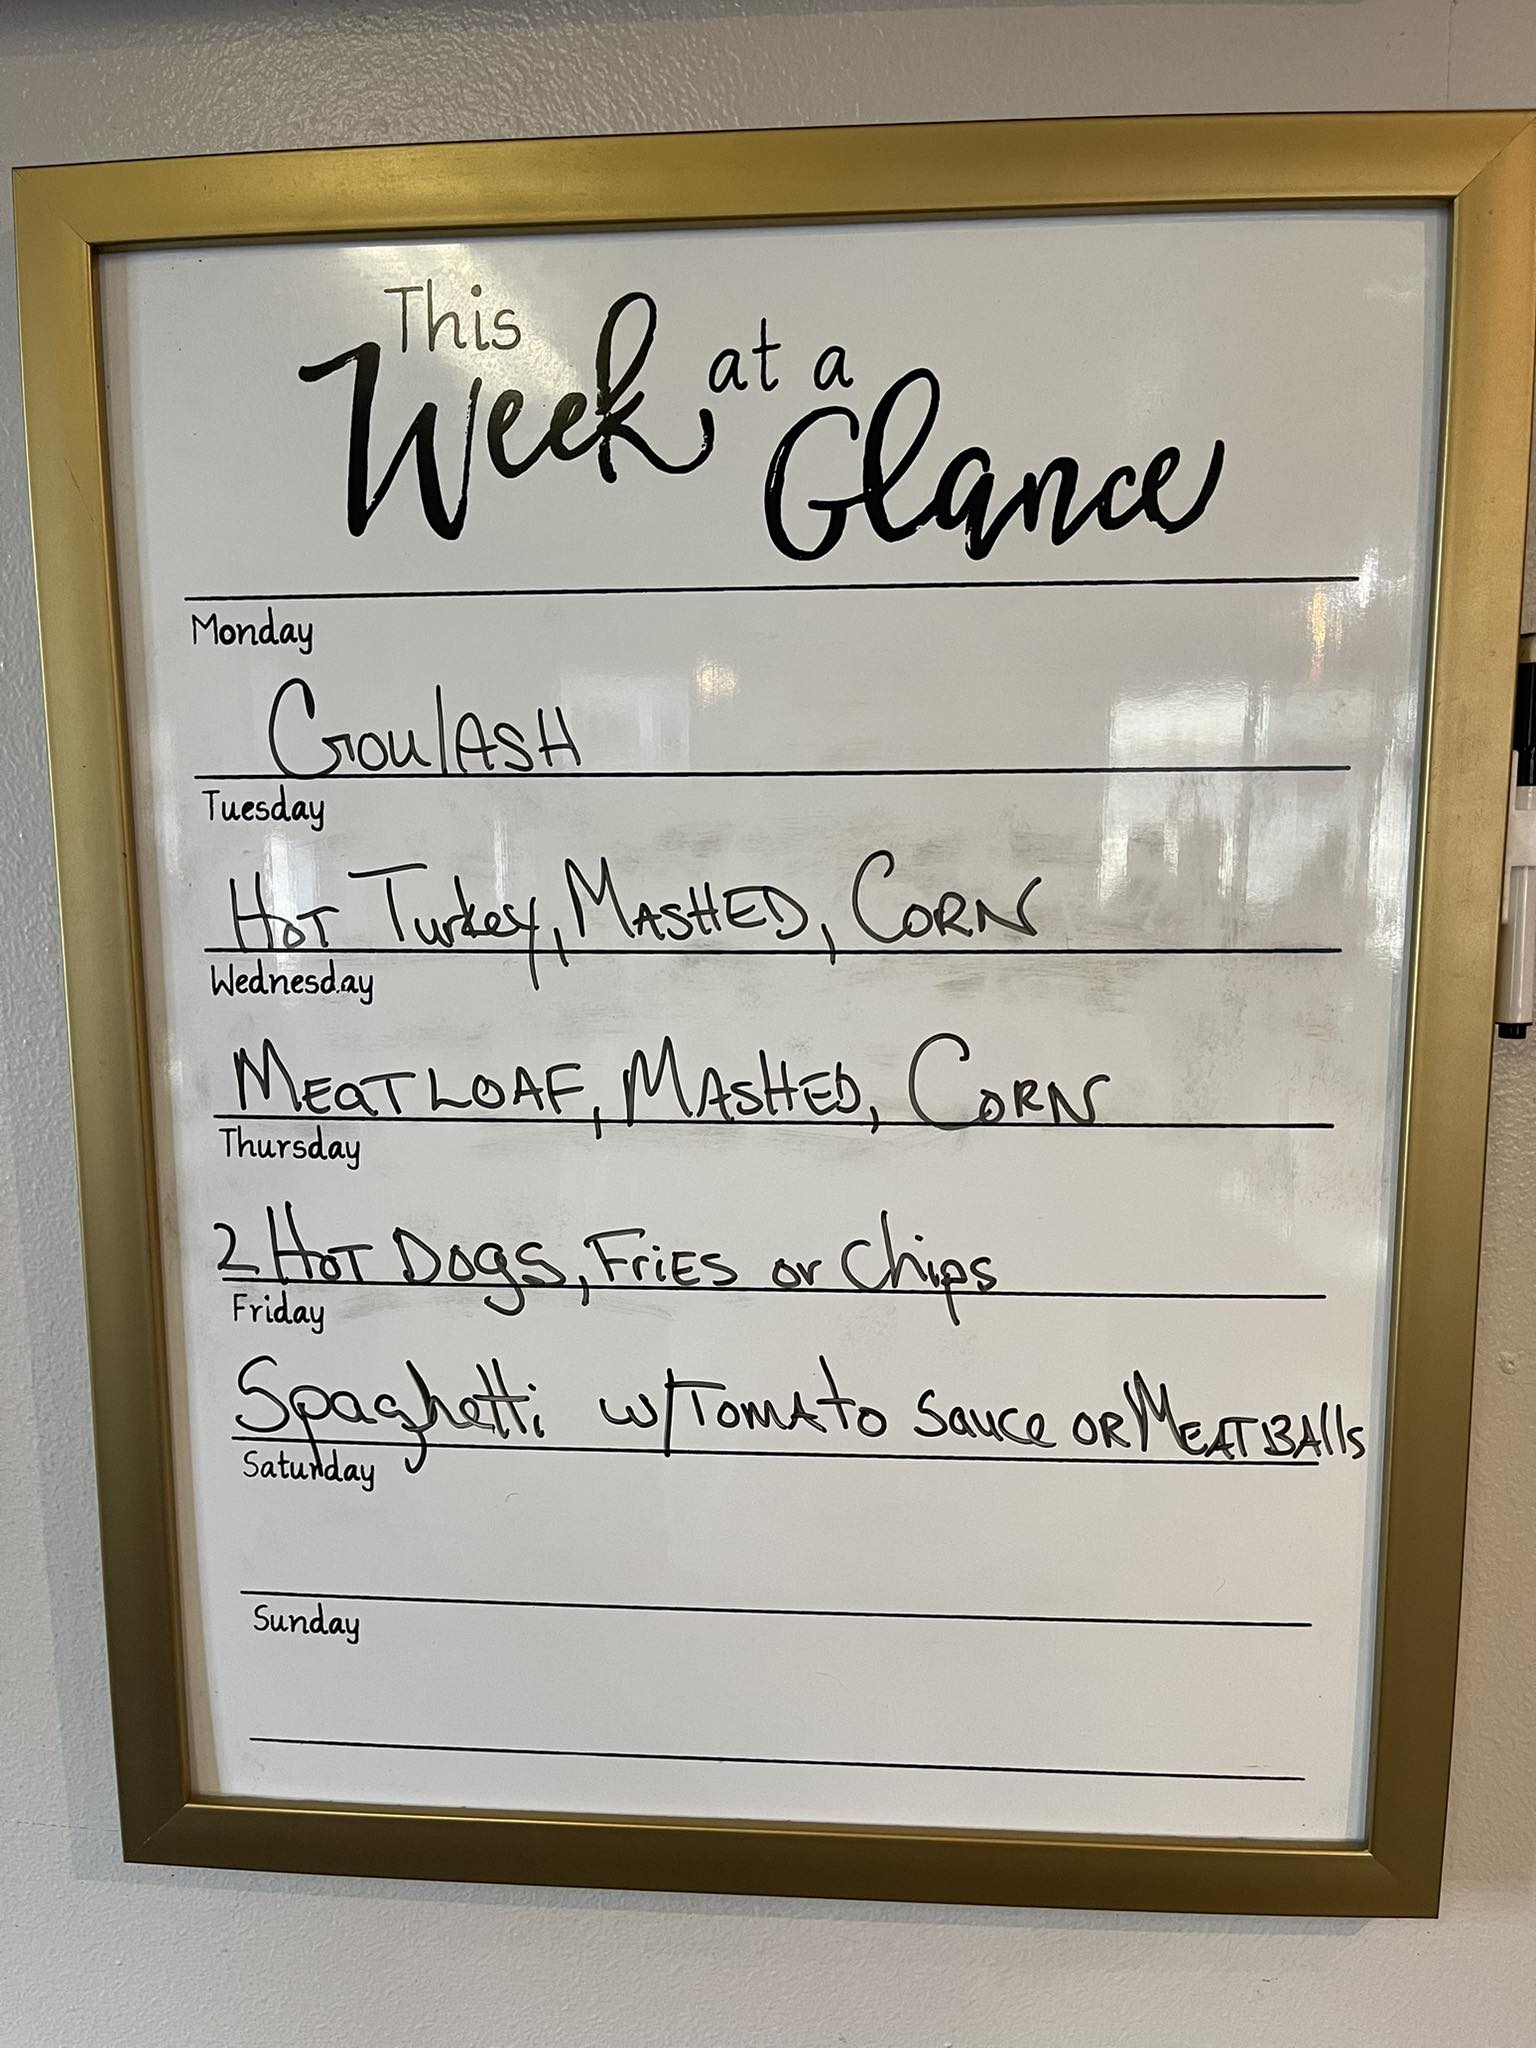 This
Week at a
Glance
Monday
GoulASH
Tuesday
HOT Turkey, MASHED, CORN
Wednesday
MEATLOAF, MASHED, CORN
Thursday
2 HOT DOGS, FRiES or Chips
Friday
Spaghetti w/TOMATO Sauce OR MEATBAlls
Saturday
Sunday